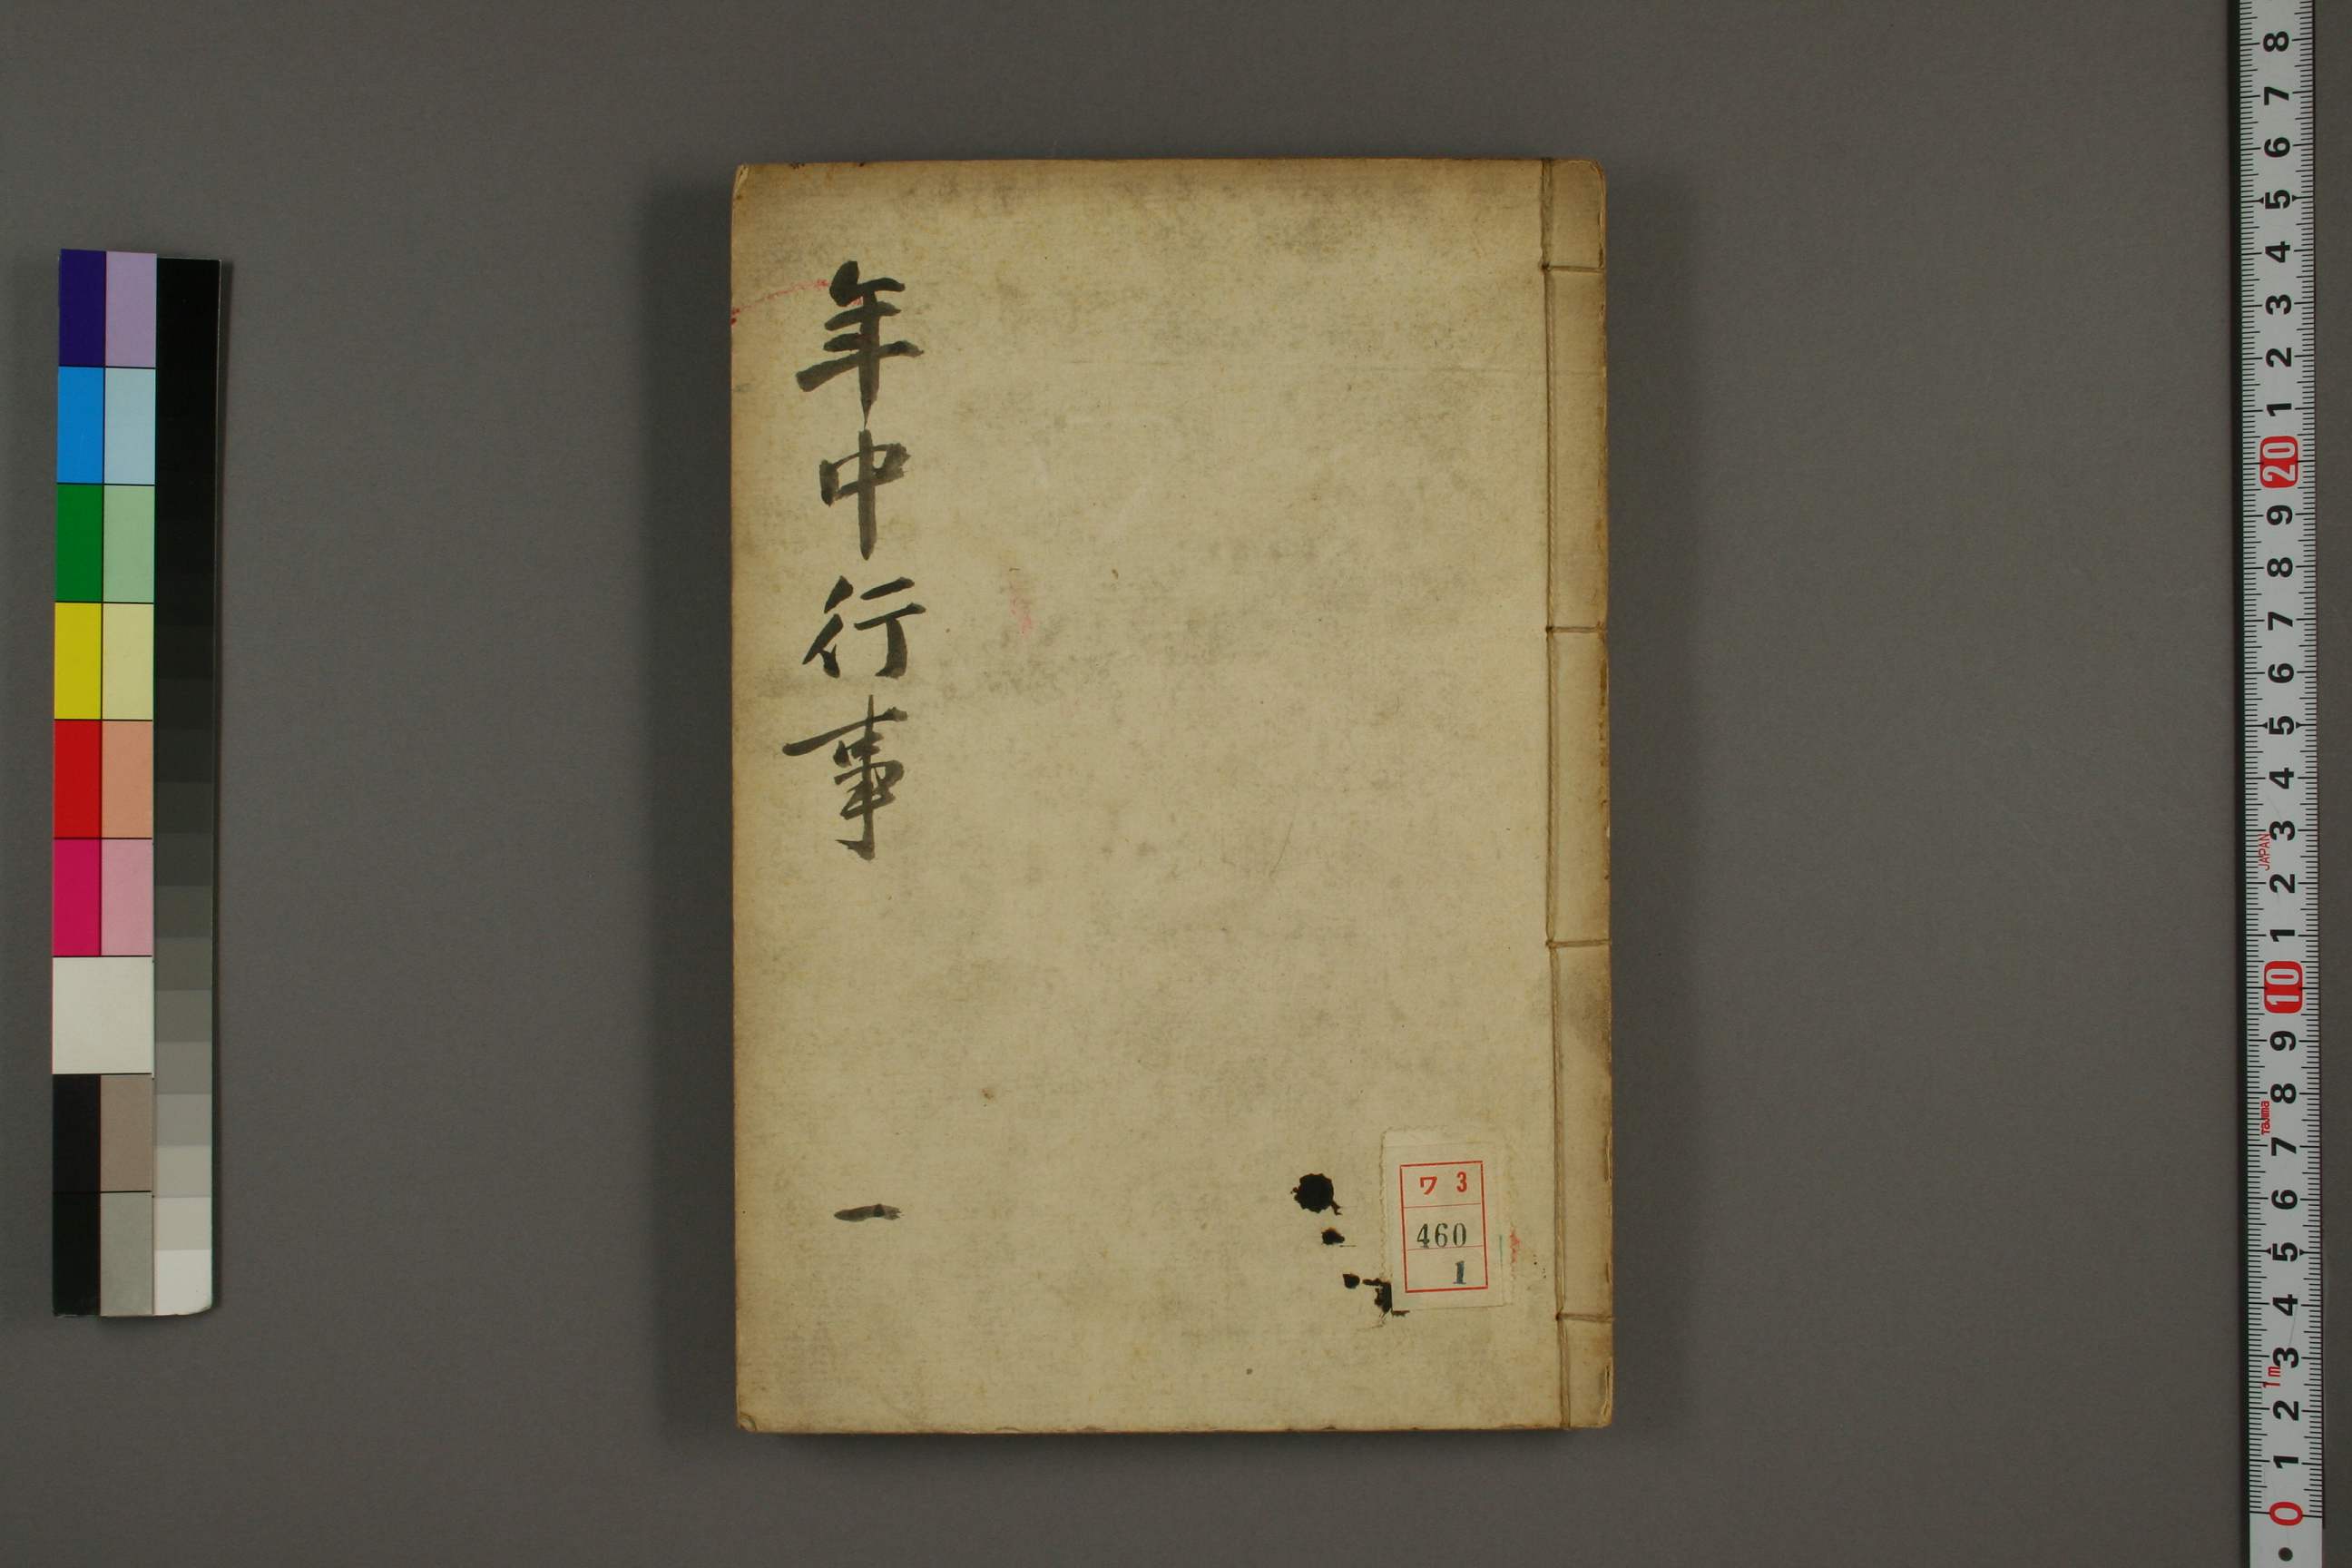 年中行事
一
ワ 3
460
1
8
7
6
5
4
3
2
1
20
9
8
7
6
5
4
3
JAPAN
2
1
10
9
8
Tajima
7
6
5
4
3
1m
2
1
0